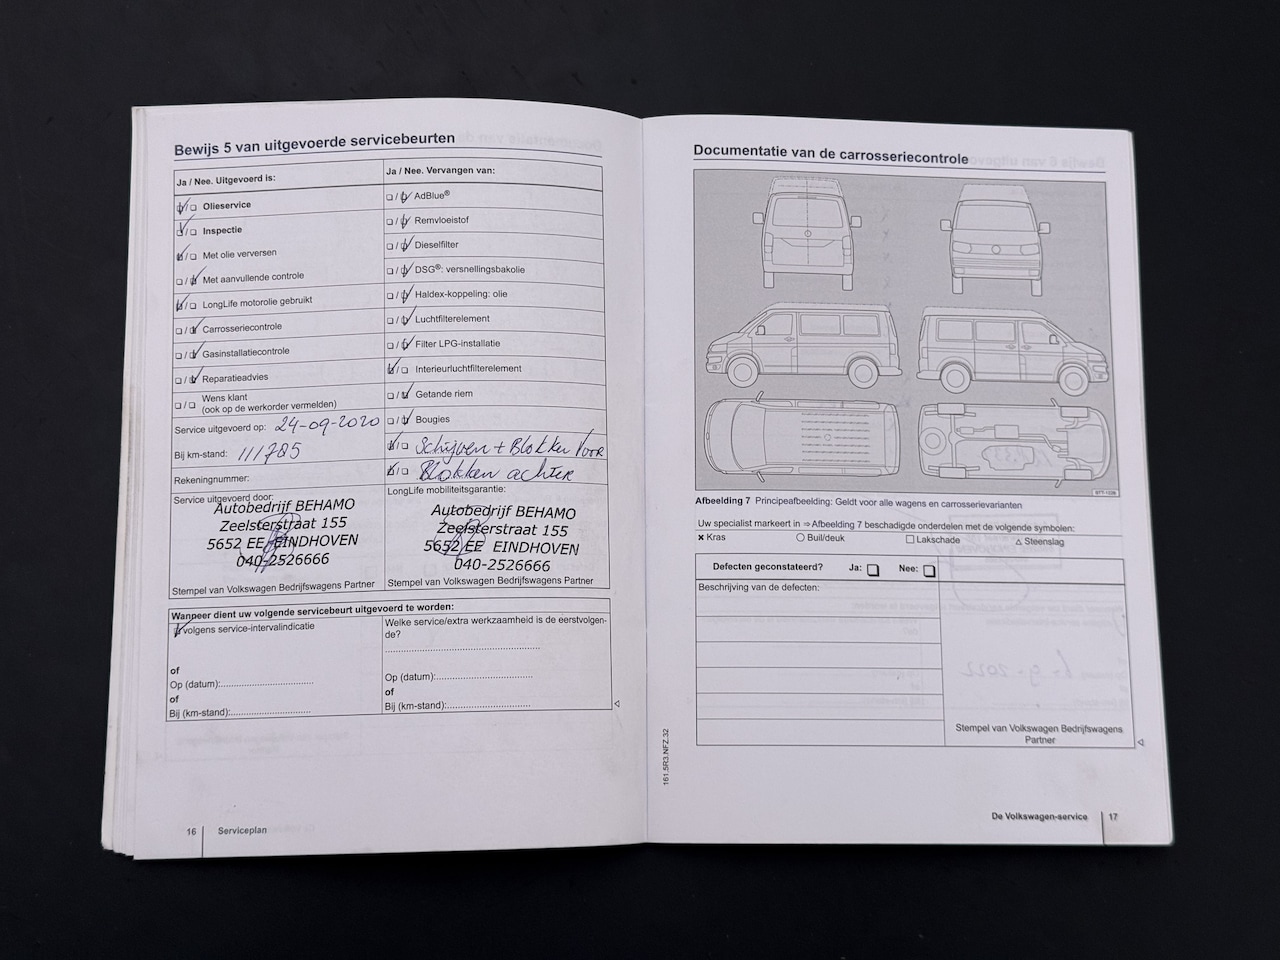 Bewijs 5 van uitgevoerde servicebeurten
Ja / Nee. Uitgevoerd is:
Olieservice
Inspectie
Met olie verversen
Met aanvullende controle
LongLife motorolie gebruikt
Carrosseriecontrole
Gasinstallatiecontrole
Reparatieadvies
Wens klant
(ook op de werkorder vermelden)
Service uitgevoerd op: 24-09-2020
Bij km-stand: 111785
Rekeningnummer:
Service uitgevoerd door:
Autobedrijf BEHAMO
Zeelsterstraat 155
5652 EE EINDHOVEN
040-2526666
Stempel van Volkswagen Bedrijfswagens Partner
Ja / Nee. Vervangen van:
AdBlue®
Remvloeistof
Dieselfilter
DSG®: versnellingsbakolie
Haldex-koppeling: olie
Luchtfilterelement
Filter LPG-installatie
Interieurluchtfilterelement
Getande riem
Bougies
Schijven + Blokken Voor
Blokken achter
LongLife mobiliteitsgarantie:
Autobedrijf BEHAMO
Zeelsterstraat 155
5652 EE EINDHOVEN
040-2526666
Stempel van Volkswagen Bedrijfswagens Partner
Wanneer dient uw volgende servicebeurt uitgevoerd te worden:
volgens service-intervalindicatie
of
Op (datum):
of
Bij (km-stand):
Welke service/extra werkzaamheid is de eerstvolgen-
de?
Op (datum):
of
Bij (km-stand):
16 Serviceplan
Documentatie van de carrosseriecontrole
B7T-1026
Afbeelding 7 Principeafbeelding: Geldt voor alle wagens en carrosserievarianten
Uw specialist markeert in ⇒ Afbeelding 7 beschadigde onderdelen met de volgende symbolen:
Kras Buil/deuk Lakschade Steenslag
Defecten geconstateerd? Ja: Nee:
Beschrijving van de defecten:
Stempel van Volkswagen Bedrijfswagens
Partner
161.5R3.NFZ.32
De Volkswagen-service 17